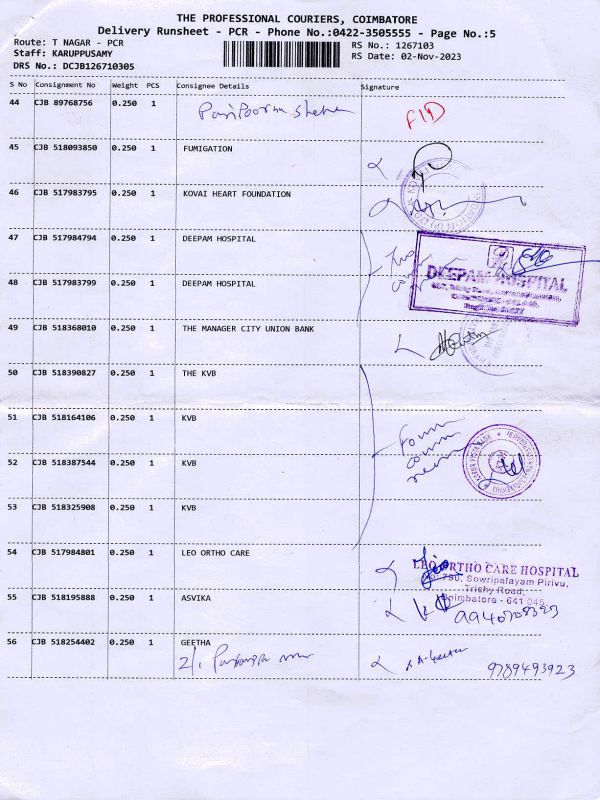 THE PROFESSIONAL COURIERS, COIMBATORE
Delivery Runsheet - PCR - Phone No.:0422-3505555 - Page No.:5
Route: T NAGAR - PCR
RS No.: 1267103
Staff: KARUPPUSAMY
RS Date: 02-Nov-2023
DRS No.: DCJB126710305
S No Consignment No Weight PCS Consignee Details Signature
44 CJB 89768756 0.250 1
45 CJB 518093850 0.250 1 FUMIGATION
46 CJB 517983795 0.250 1 KOVAI HEART FOUNDATION
47 CJB 517984794 0.250 1 DEEPAM HOSPITAL
DEEPAM HOSPITAL
48 CJB 517983799 0.250 1 DEEPAM HOSPITAL
49 CJB 518368010 0.250 1 THE MANAGER CITY UNION BANK
50 CJB 518390827 0.250 1 THE KVB
51 CJB 518164106 0.250 1 KVB
Four
52 CJB 518387544 0.250 1 KVB
53 CJB 518325908 0.250 1 KVB
54 CJB 517984801 0.250 1 LEO ORTHO CARE
LEO ORTHO CARE HOSPITAL
790, Sowripalayam Pirivu,
Trichy Road,
Coimbatore - 641 045
55 CJB 518195888 0.250 1 ASVIKA
56 CJB 518254402 0.250 1 GEETHA
9789493923